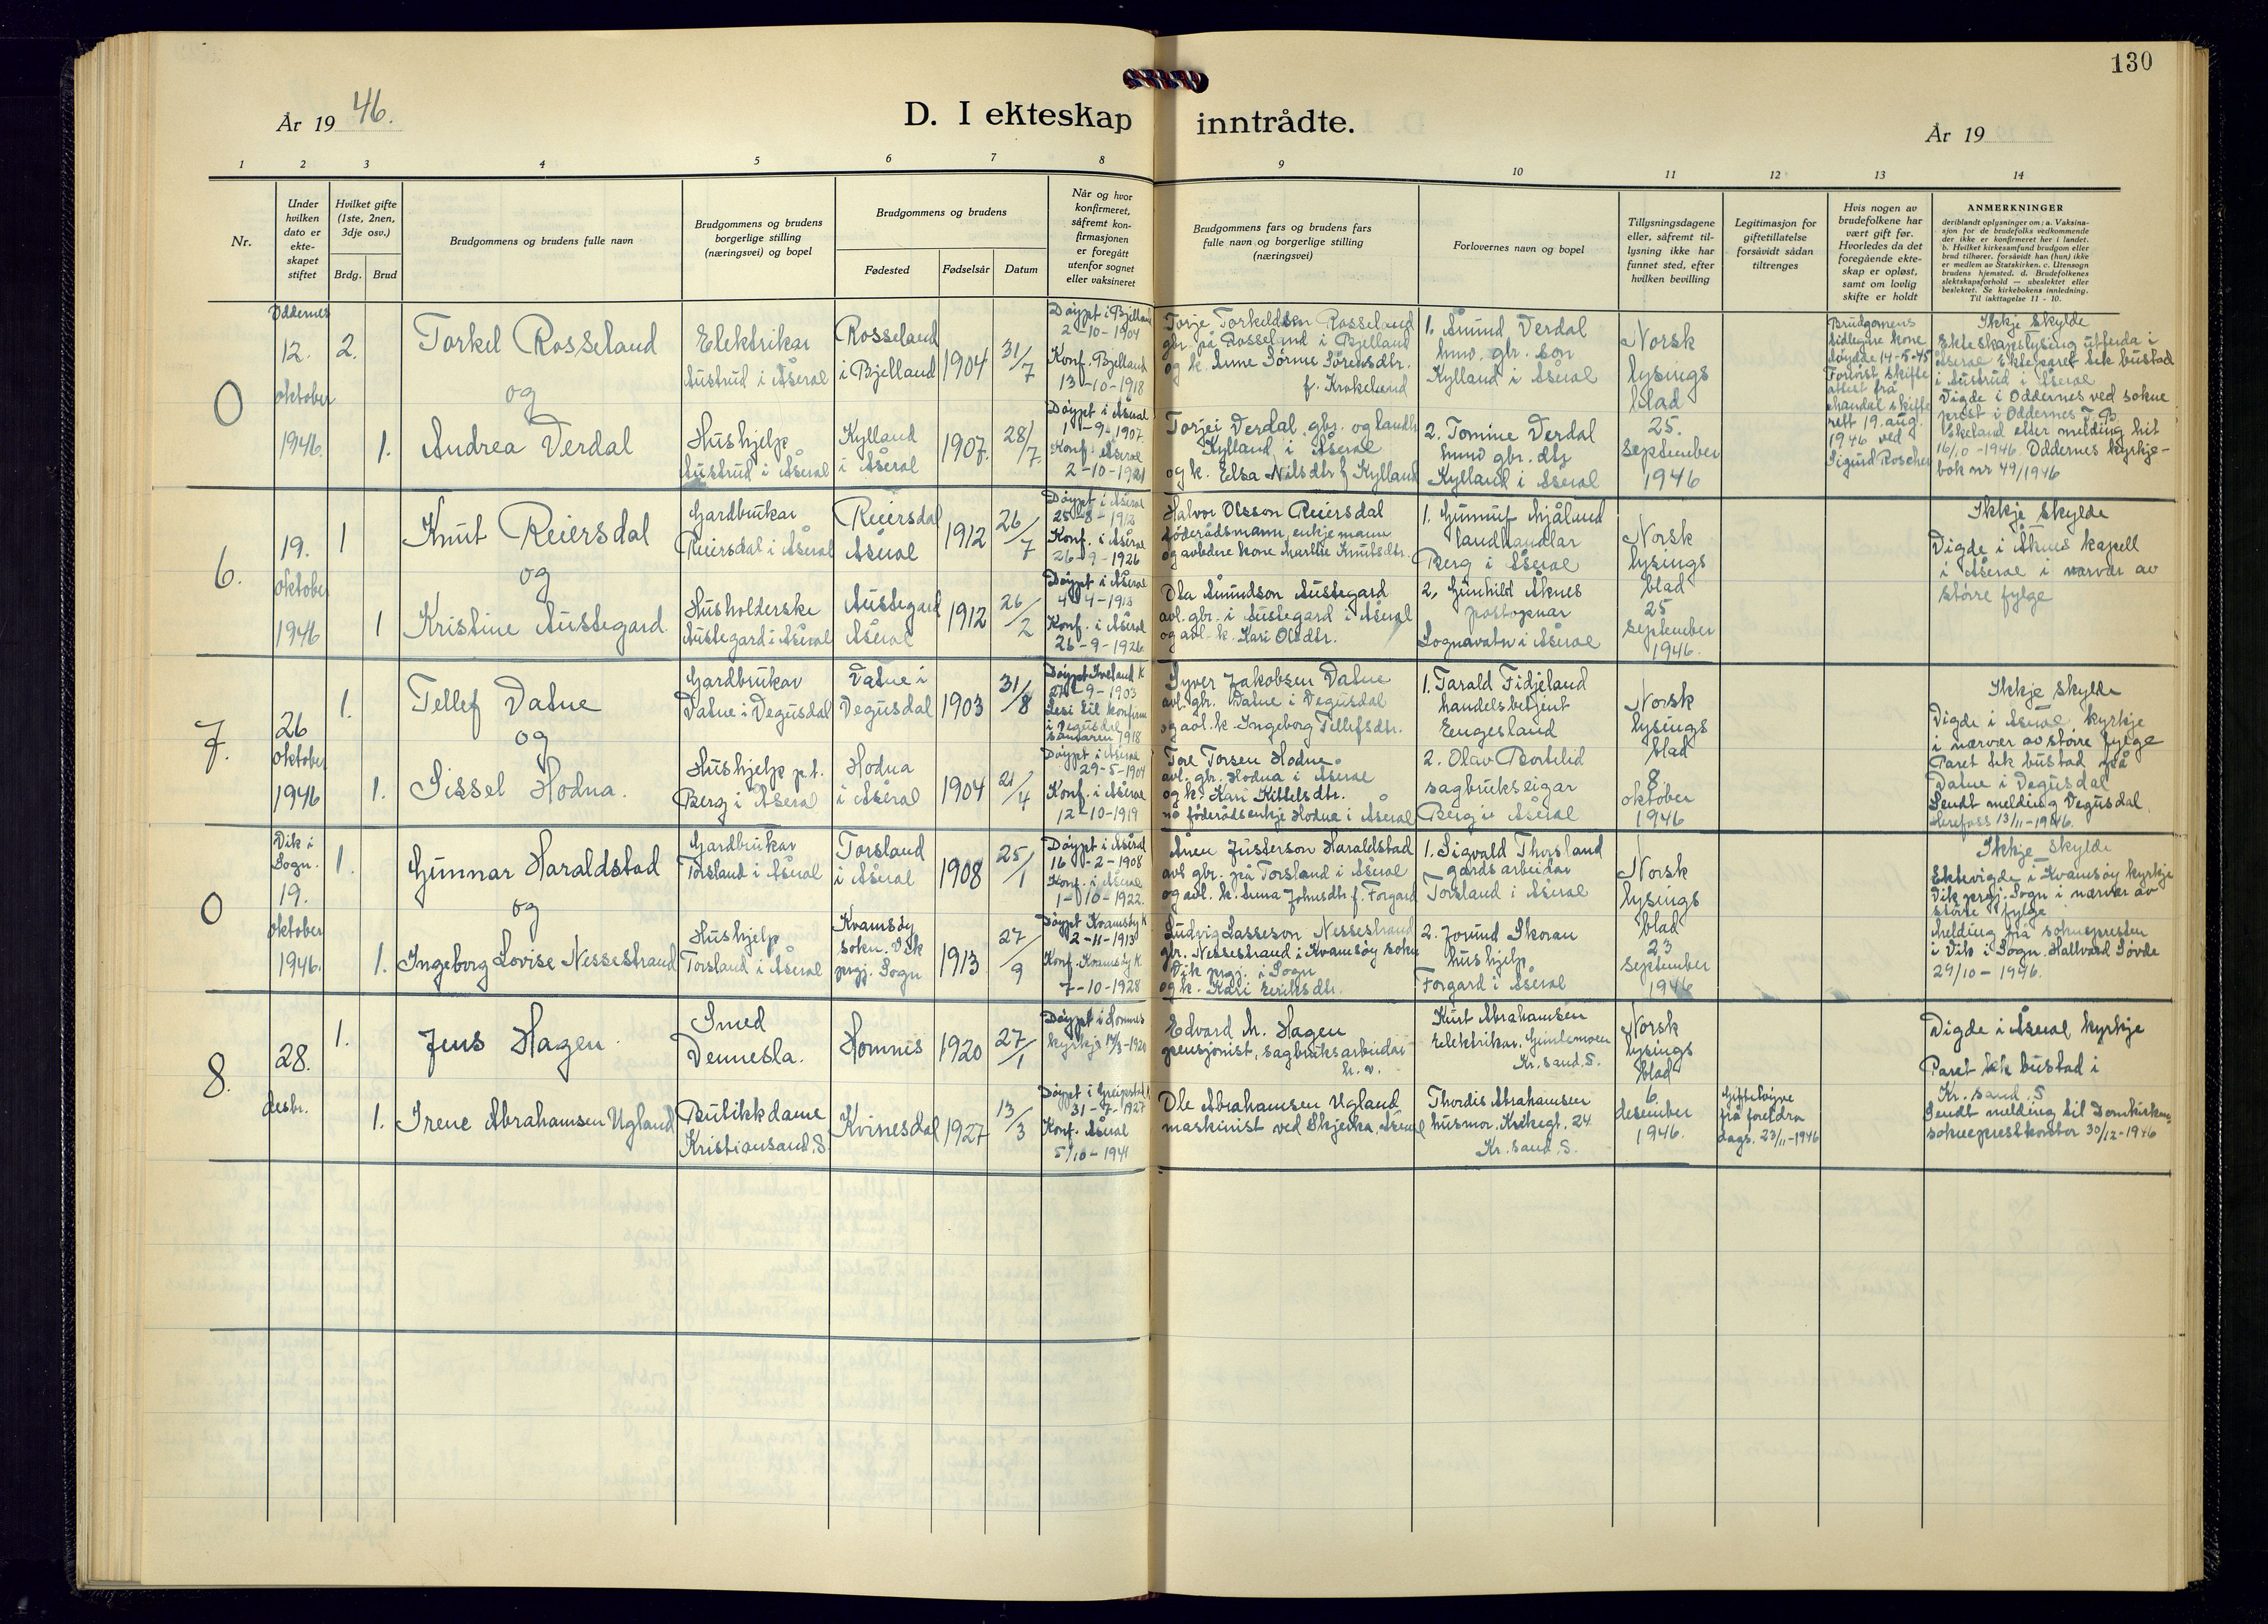 130
År 19 46.
D. I ekteskap inntrådte.
År 19
1 2 3 4 5 6 7 8 9 10 11 12 13 14
Nr.
Under
hvilken
dato er
ekte-
skapet
stiftet
Hvilket gifte
(1ste, 2nen,
3dje osv.)
Brdg.
Brud
Brudgommens og brudens fulle navn
Brudgommens og brudens
borgerlige stilling
(næringsvei) og bopel
Brudgommens og brudens
Fødested
Fødselsår
Datum
Når og hvor
konfirmeret,
såfremt kon-
firmasjonen
er foregått
utenfor sognet
eller vaksineret
Brudgommens fars og brudens fars
fulle navn og borgerlige stilling
(næringsvei)
Forlovernes navn og bopel
Tillysningsdagene
eller, såfremt til-
lysning ikke har
funnet sted, efter
hvilken bevilling
Legitimasjon for
giftetillatelse
forsåvidt sådan
tiltrenges
Hvis nogen av
brudefolkene har
vært gift før.
Hvorledes da det
foregående ekte-
skap er opløst,
samt om lovlig
skifte er holdt
ANMERKNINGER
deriblandt oplysninger om: a. Vaksina-
sjon for de brudefolks vedkommende
der ikke er konfirmeret her i landet.
b. Hvilket kirkesamfund brudgom eller
brud tilhører, forsåvidt han (hun) ikke
er medlem av Statskirken. c. Utensogn
brudens hjemsted. d. Brudefolkenes
slektskapsforhold — ubeslektet eller
beslektet. Se kirkebokens innledning.
Til iakttagelse 11 - 10.
0
Oddernes
12.
oktober
1946.
2.
1.
Torkel Rosseland
og
Andrea Verdal
Elektrikar
Austrud i Åseral
Hushjelp
Austrud i Åseral
Rosseland
i Bjelland
Kylland
i Åseral
1904
31/7
1907.
28/7.
Døypt i Bjelland
2-10-1904
Konf. Bjelland
13-10-1918
Døypt i Åseral
1-9-1907.
Konf. i Åseral
2-10-1921
Torje Torkeldsen Rosseland
gbr. på Rosseland i Bjelland
og k. Anne Sørine Sørensdtr.
f. Krokelund
Torjei Verdal, gbr. og landh
Kylland i Åseral
og k. Elsa Nilsdtr f Kylland
1. Åmund Verdal
hmv. gbr. son
Kylland i Åseral
2. Tomine Verdal
hmv gbr. dtr
Kylland i Åseral
Norsk
lysings
blad
25.
september
1946
Brudgomens
tidlegare kone
døydde 14-5-45
Framvist skifte
attest frå
Mandal skifte
rett 19. aug.
1946 ved
Sigurd Roscher
Ikkje skylde
Ekteskapslysing utferda i
Åseral. Ekteparet tek bustad
i Austrud i Åseral
Vigde i Oddernes ved sokne
prest i Oddernes T. B.
Ekeland etter melding hit
16/10-1946. Oddernes kyrkje-
bok nr 49/1946
6.
19.
oktober
1946
1
1
Knut Reiersdal
og
Kristine Austegard.
Gardbrukar
Reiersdal i Åseral
Husholderske
Austegard i Åseral
Reiersdal
Åseral
Austegard
Åseral
1912
26/7
1912
26/2
Døypt i Åseral
25-8-1912
Konf. i Åseral
26-9-1926
Døypt i Åseral
4-4-1912
Konf. i Åseral
26-9-1926
Halvor Olsson Reiersdal
føderådsmann, enkjemann
og avlidne kone Marthe Knutsdtr.
Ola Åmundson Austegard
avl. gbr. i Austegard i Åseral
og avl. k. Kari Olsdtr.
1. Gunnuf Mjåland
landhandlar
Berg i Åseral
2. Gunhild Åknes
postopnar
Sognavatn i Åseral
Norsk
lysings
blad
25
september
1946.
Ikkje skylde
Vigde i Åknes kapell
i Åseral i nærvær av
større fylge
7.
26
oktober
1946
1.
1.
Tellef Vatne
og
Sissel Hodna.
Gardbrukar
Vatne i Vegusdal
Hushjelp p.t.
Berg i Åseral
Vatne i
Vegusdal
Hodna
i Åseral
1903
31/8
1904
21/4
Døypt Iveland k
27-9-1903
Lesi til konfirm
i Vegusdal
sumaren 1918
Døypt i Åseral
29-5-1904
Konf. i Åseral
12-10-1919
Syver Jakobsen Vatne
avl. gbr. Vatne i Vegusdal
og avl. k. Ingeborg Tellefsdtr.
Tore Torsen Hodne.
avl. gbr. Hodna i Åseral
og k. Kari Kittelsdtr.
no føderådsenkje Hodne i Åseral
1. Tarald Fidjeland
handelsbetjent
Engesland
2. Olav Bortelid
sagbrukseigar
Berg i Åseral
Norsk
lysings
blad
8
oktober
1946
Ikkje skylde
Vigde i Åseral kyrkje
i nærvær av større fylge
Paret tek bustad på
Vatne i Vegusdal
Sendt melding Vegusdal,
Herefoss 13/11-1946.
0
Vik i
Sogn.
19.
oktober
1946.
1.
1.
Gunnar Haraldstad
og
Ingeborg Lovise Nessestrand
Gardbrukar
Torsland i Åseral
Hushjelp
Torsland i Åseral
Torsland
i Åseral
Kvamsøy
sokn. Vik
prgj. Sogn
1908
25/1
1913
27/9
Døypt i Åseral
16-2-1908
Konf. i Åseral
1-10-1922.
Døypt Kvamsøy k
2-11-1913
Konf. Kvamsøy k
7-10-1928
Ånen Justerson Haraldstad
avl gbr. på Torsland i Åseral
og avl. k. Anna Johnsdtr f. Forgard
Ludvig Lasseson Nessestrand
gbr. Nessestrand i Kvamsøy sokn
Vik prgj. i Sogn
og k. Kari Eriksdtr.
1. Sigvald Thorsland
gardsarbeidar
Torsland i Åseral
2. Jorund Skoran
hushjelp
Forgard i Åseral
Norsk
lysings
blad
23
september
1946
Ikkje skylde
Ektevigde i Kvamsøy kyrkje
Vik prgj. Sogn i nærvær av
større fylge
Melding frå soknepresten
i Vik i Sogn. Hallvard Søvde
29/10-1946.
8.
28.
desbr.
1.
1.
Jens Hagen.
Irene Abrahamsen Ugland
Smed
Vennesla.
Butikkdame
Kristiansand S.
Homnis
Kvinesdal
1920
27/1
1927
13/3
Døypt i Homnes
kyrkje 14/3-1920
Døypt i Greipstad k
31-7-1927
Konf. Åseral
5/10-1941
Edvard M. Hagen
pensjonist, sagbruksarbeidar
m. v.
Ole Abrahamsen Ugland
maskinist ved Skjerka, Åseral
Kurt Abrahamsen
Elektrikar, Gimlemoen
Kr. sand. S.
Thordis Abrahamsen
husmor, Kråkegt. 24
Kr. sand. S.
Norsk
lysings
blad
6.
desember
1946.
Gifteløyve
frå foreldra
dags. 23/11-1946
Vigde i Åseral kyrkje
Paret tek bustad i
Kr. sand. S
Sendt melding til Domkirkens
sokneprestkontor 30/12-1946